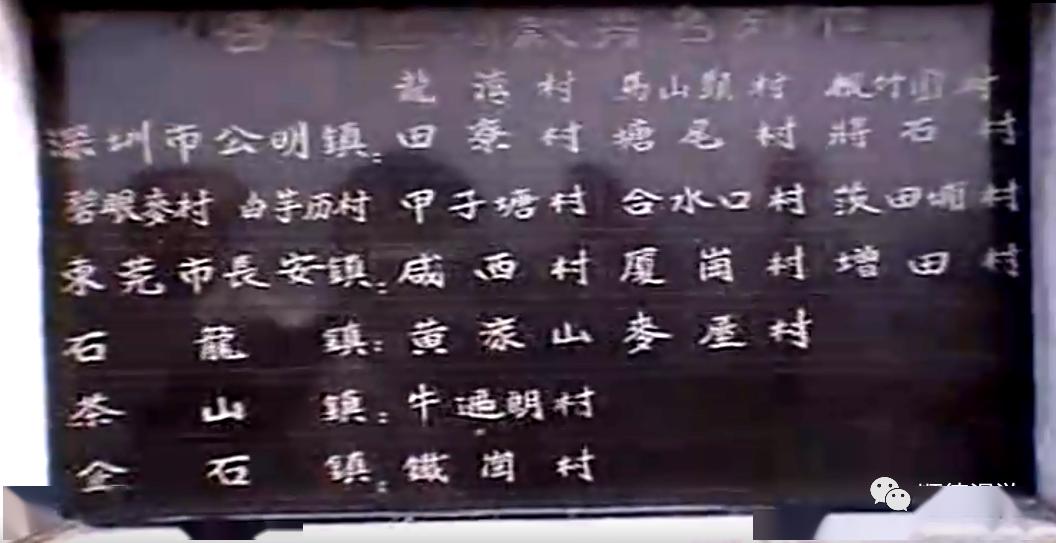 龍灣村 馬山頭村 村
深圳市公明鎮：田寮村 塘尾村 將石村
碧眼麥村 白芋历村 甲子塘村 合水口村 茨田埔村
東莞市長安鎮：咸西村 厦崗村 增田村
石龍鎮：黄家山麥屋村
茶山鎮：牛過朗村
企石鎮：鐵崗村